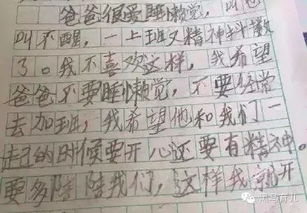 爸爸很爱睡懒觉，叫
叫不醒，一上班又精神抖擞
了。我不喜欢这样，我希望
爸爸不要睡懒觉，不要经常
去加班，我希望他和我们一
起的时候要开心还要有精神。
要多陪陪我们，这样我就开